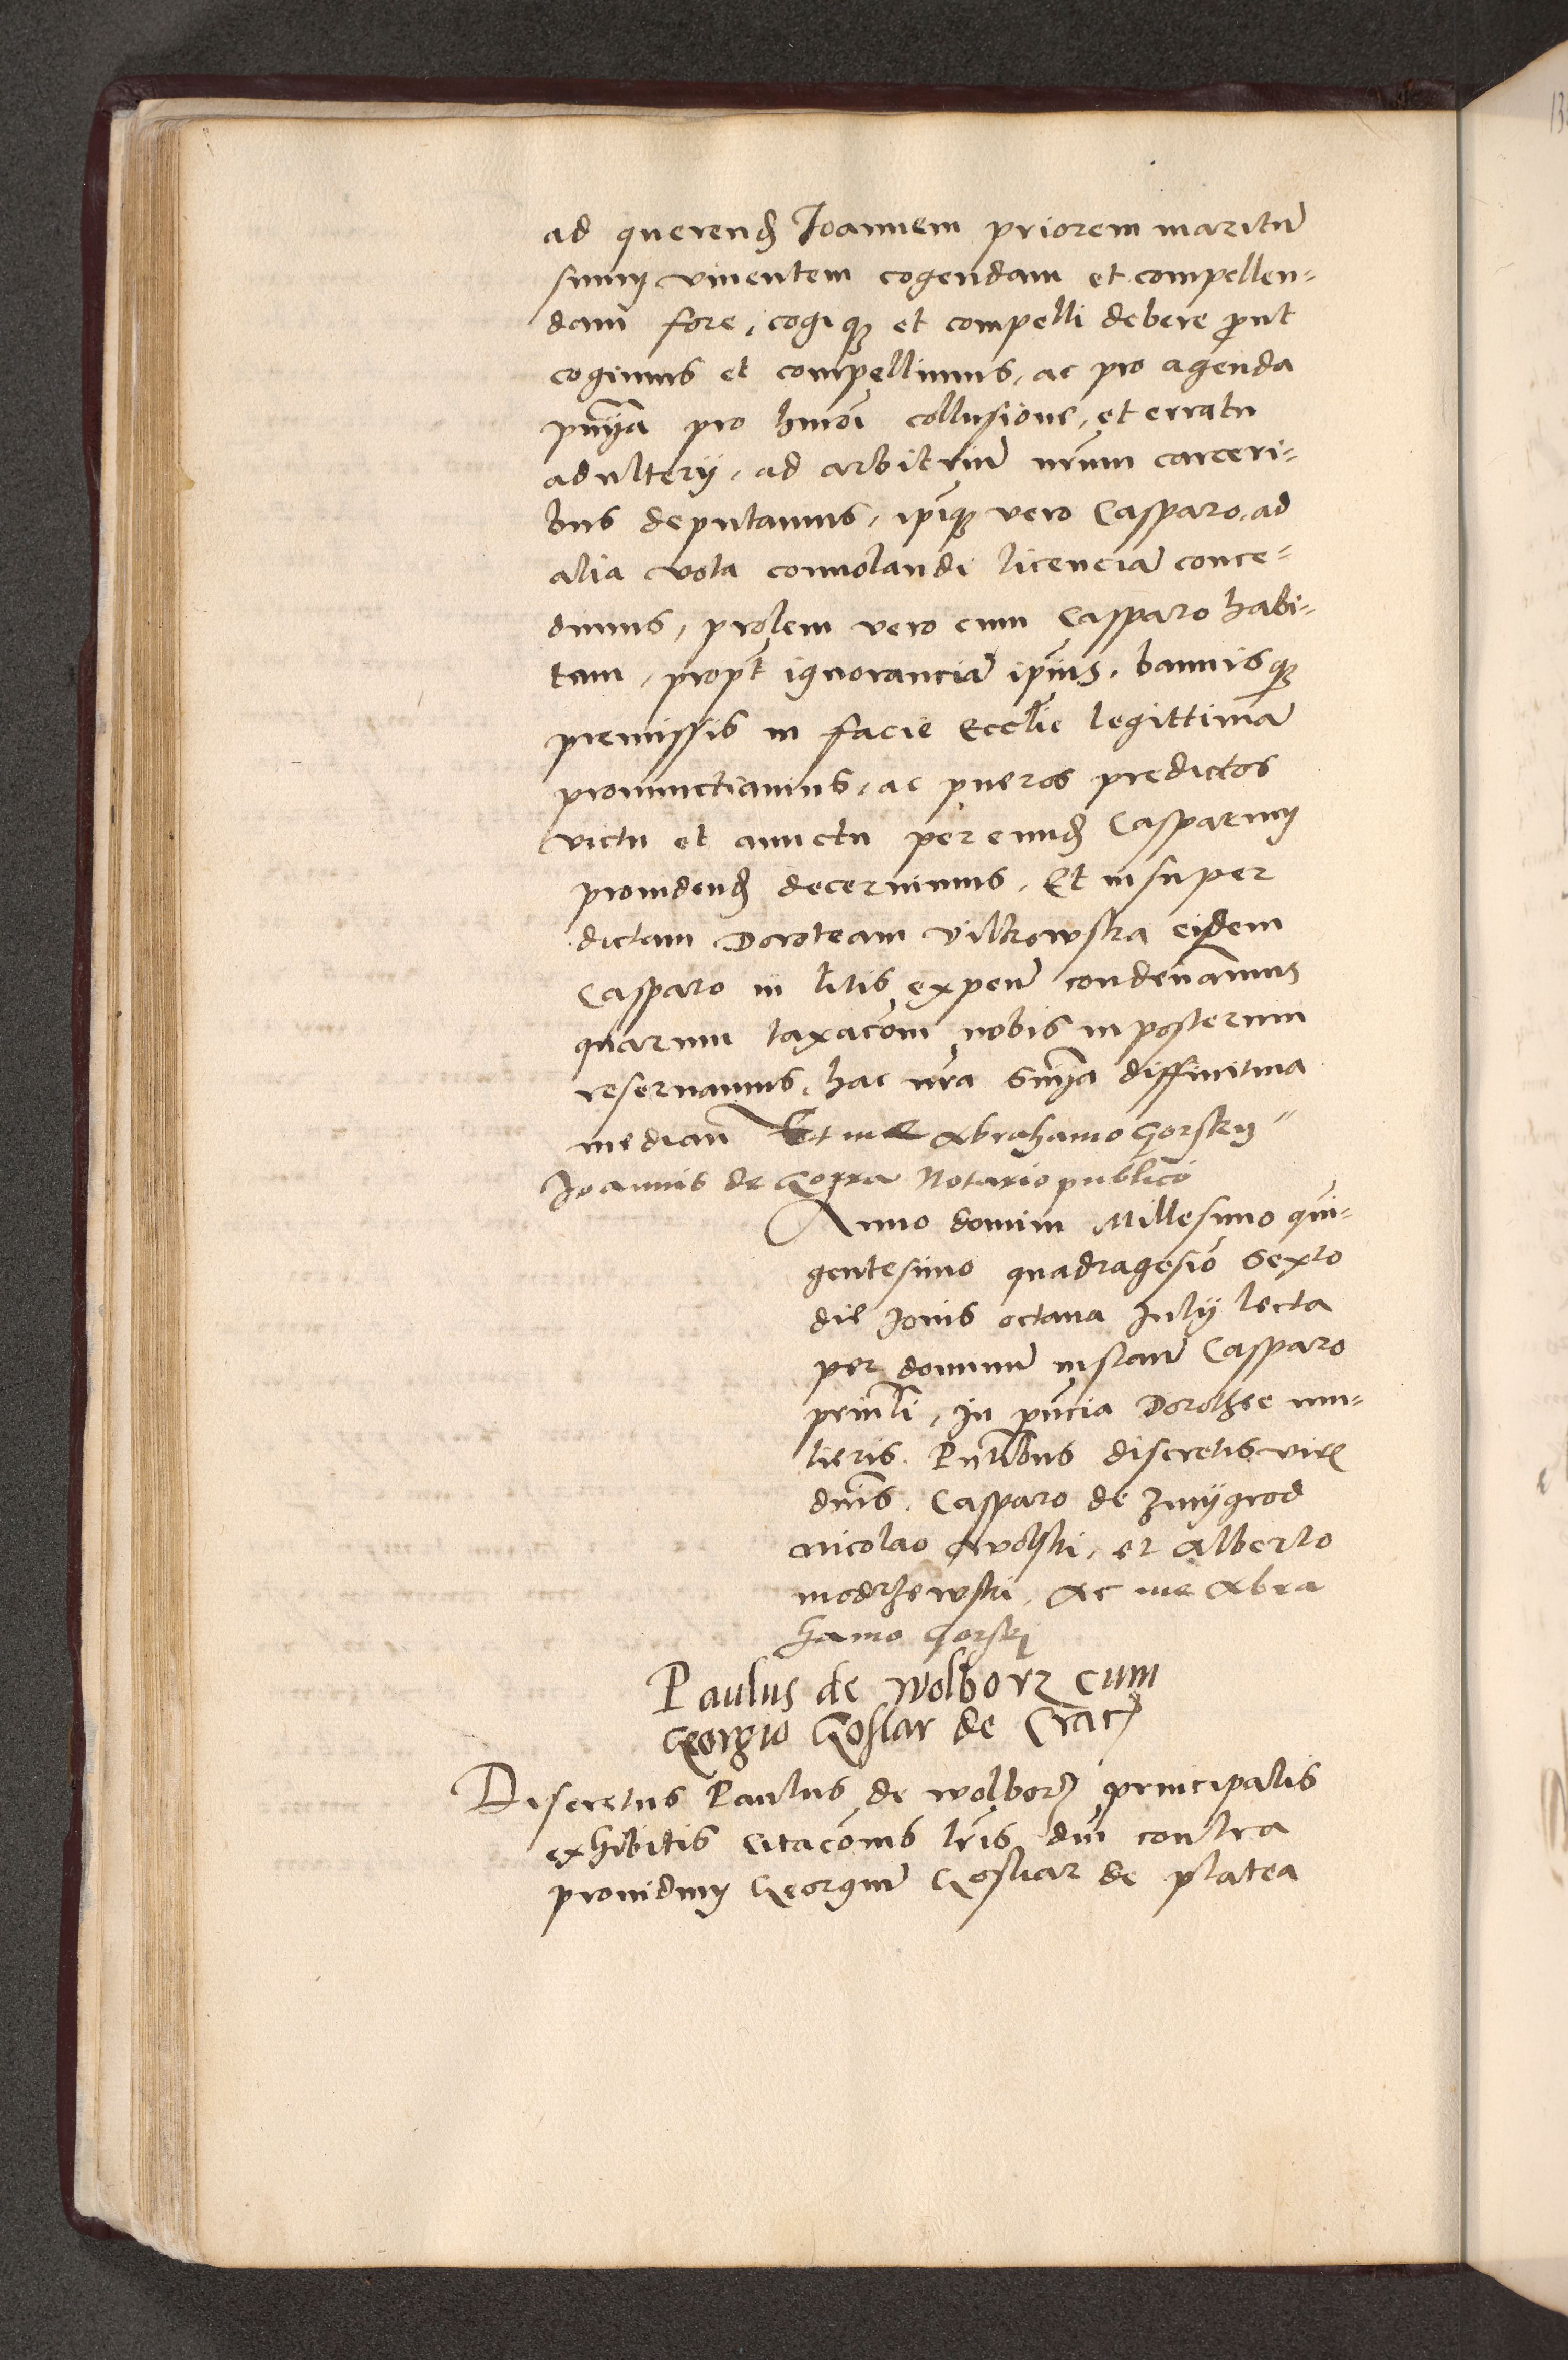 ad querend Joannem priorem maritū
suum viuentem cogendam et compellen=
dam fore, cogiq; et compelli debere ꝓut
cogimus et compellimus, ac pro agenda
pnīa pro hmōi collusione, et erratu
adulterij, ad arbitriū nrūm carceri=
bus deputamus, ipīq; vero Casparo, ad
alia vota conuolandi licenciā conce=
dimus, prolem vero cum Casparo habi=
tam, propt ignoranciā ipīus, bannisq;
premissis in facie Ecclīe legittimā
pronunctiamus, ac pueros predictos
victu et amictu per eund Casparum
prouidend decernimus, Et insuper
dictam Doroteam Vilkowska eidem
Casparo in litis expen̄ condēnamus
quarum taxacōm nobis in posterum
reseruamus, hac nrā Snīa diffinitiua
median̄ Et me Abrahamo Gorsky
Joannis de Gorra Notario publico
Anno domini Millesimo qui=
gentesimo quadragesiō Sexto
die Jouis octaua Julij lecta
per dominū instan̄ Casparo
prinlī, In pn̄cia Dorothee mu=
lieris. Pntībus discretis vir
dnīs. Casparo de Zmijgrod
Nicolao Gwolski, et Alberto
modrzewski, Ac me Abra
hamo Gorskj
Paulus de Wolborz cum
Georgio Goslar de Crac
Discretus Paulus de Wolborz principalis
exhibitis Citacōnis lrīs dnī contra
prouidum Georgiū Gosliar de platea